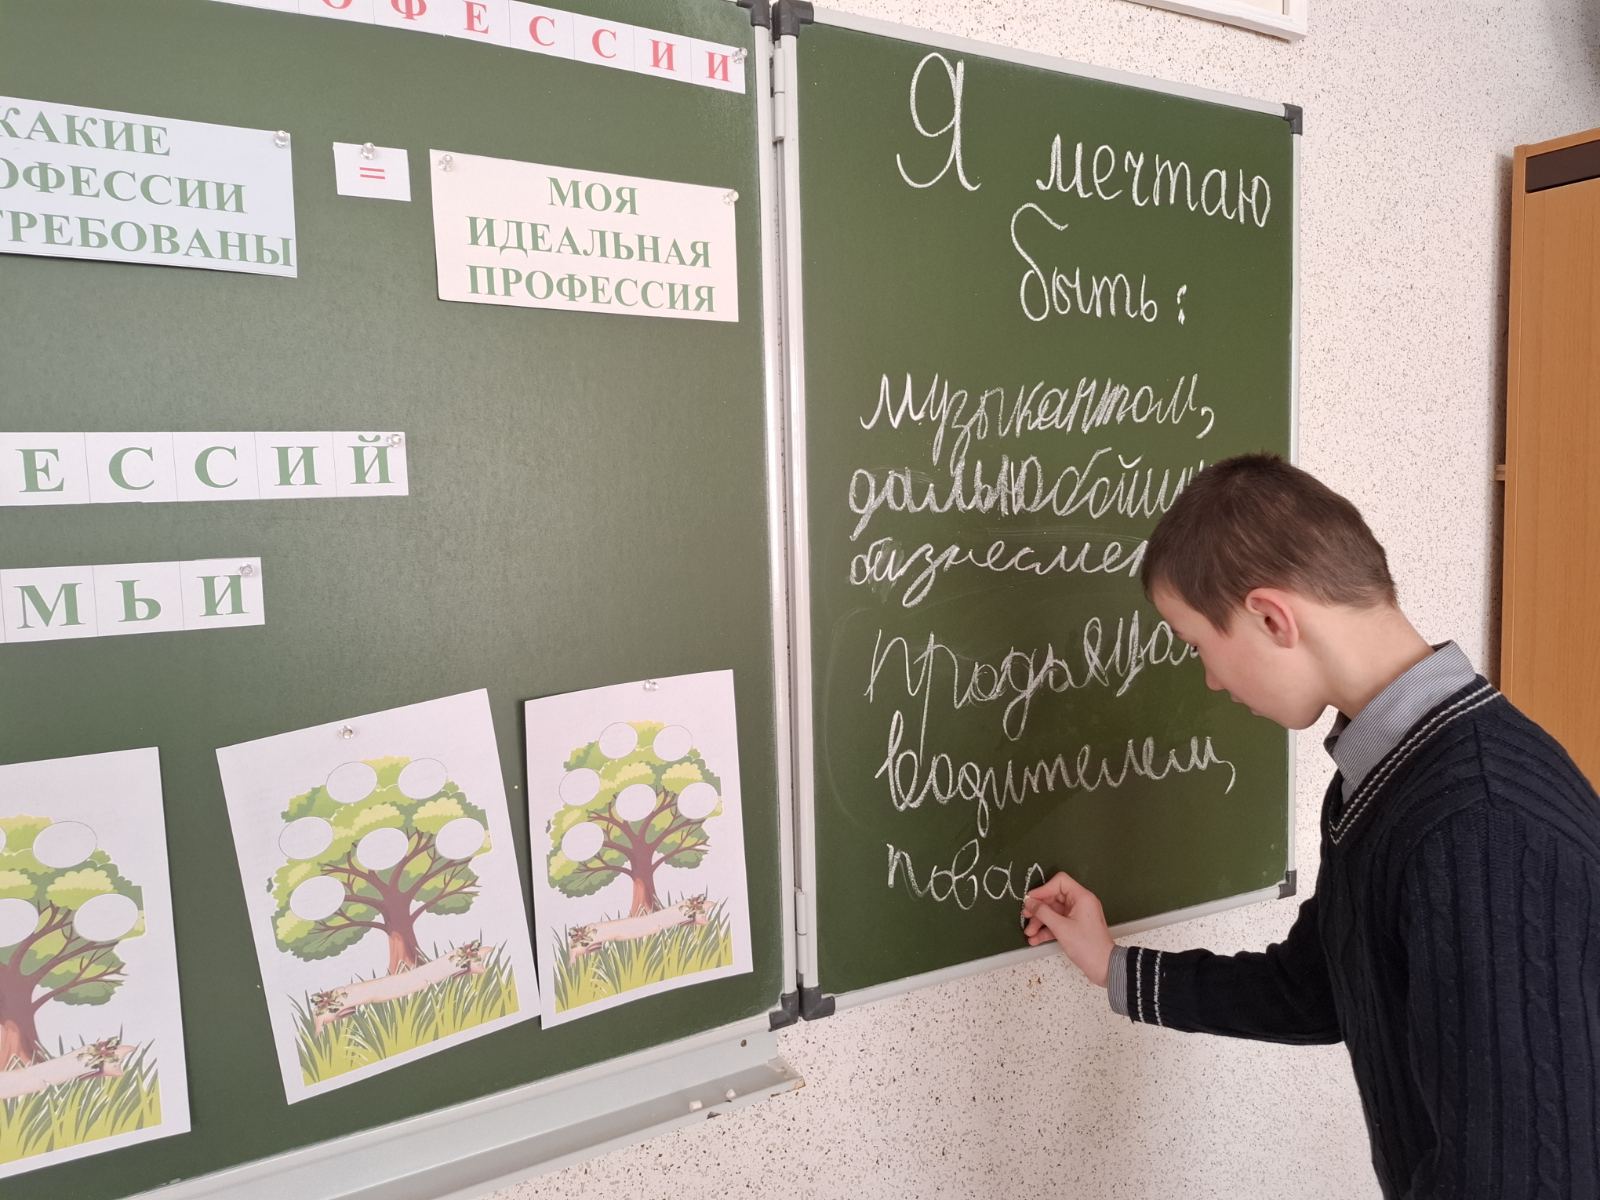 ОФЕССИИ
КАКИЕ
ОФЕССИИ
ТРЕБОВАНЫ
=
МОЯ
ИДЕАЛЬНАЯ
ПРОФЕССИЯ
ЕССИЙ
МЬИ
Я мечтаю
быть:
музыкантом,
дальнобойщи
бизнесмен
продавцом
водителем,
повар